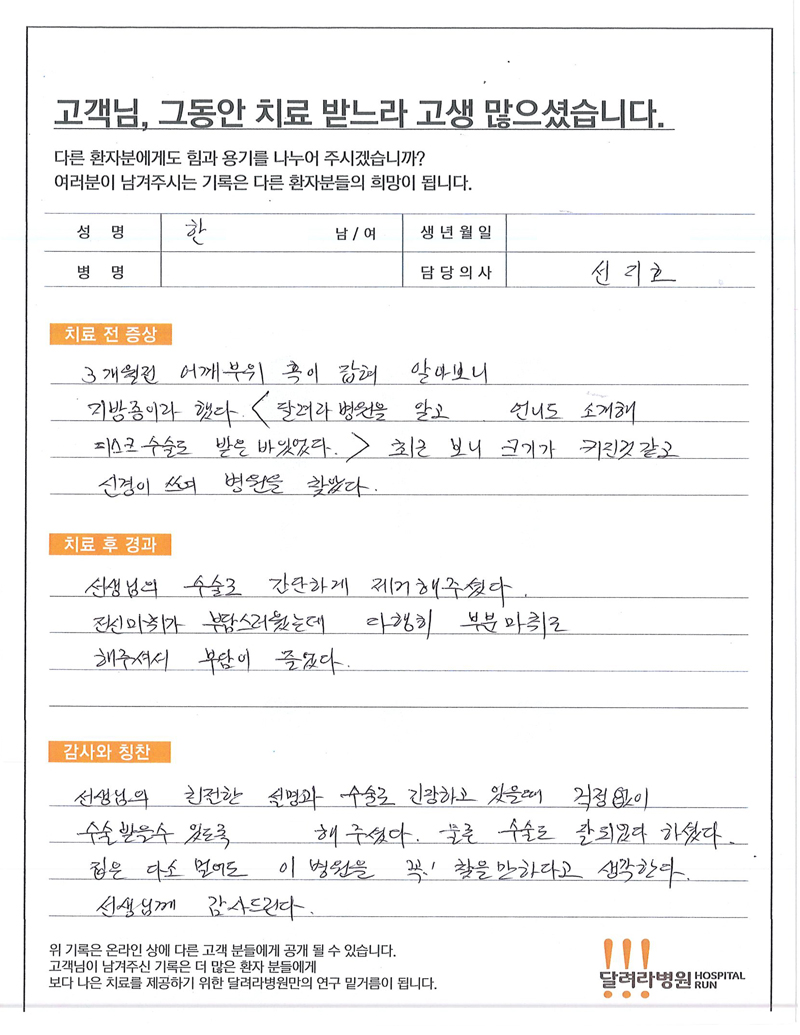 고객님, 그동안 치료 받느라 고생 많으셨습니다.
다른 환자분에게도 힘과 용기를 나누어 주시겠습니까?
여러분이 남겨주시는 기록은 다른 환자분들의 희망이 됩니다.
성 명 한 남 / 여 생 년 월 일
병 명 담 당 의 사 선 리 호
치료 전 증상
3개월전 어깨부위 혹이 잡혀 알아보니
지방종이라 했다. < 달려라병원을 알고 언니도 소개해
디스크수술도 받은바있었다. > 최근 보니 크기가 커진것같고
신경이 쓰여 병원을 찾았다.
치료 후 경과
선생님의 수술로 간단하게 제거해주셨다.
전신마취가 부담스러웠는데 다행히 부분마취로
해주셔서 부담이 줄었다.
감사와 칭찬
선생님의 친절한 설명과 수술로 긴장하고 있을때 걱정없이
수술받을수 있도록 해주셨다. 물론 수술도 잘되었다 하셨다.
집은 다소 멀어도 이 병원을 꼭! 찾을만하다고 생각한다.
선생님께 감사드린다.
위 기록은 온라인 상에 다른 고객 분들에게 공개 될 수 있습니다.
고객님이 남겨주신 기록은 더 많은 환자 분들에게
보다 나은 치료를 제공하기 위한 달려라병원만의 연구 밑거름이 됩니다.
!!!
달려라병원 HOSPITAL RUN